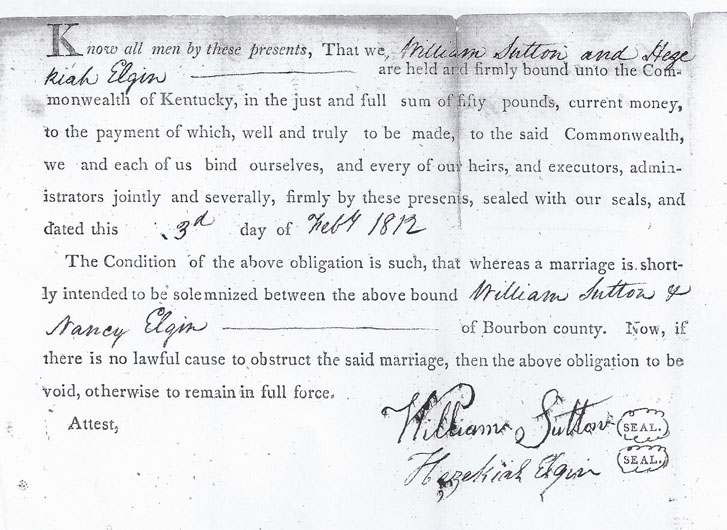 Know all men by these presents, That we, William Sutton and Heze
kiah Elgin are held and firmly bound unto the Com-
monwealth of Kentucky, in the just and full sum of fifty pounds, current money,
to the payment of which, well and truly to be made, to the said Commonwealth,
we and each of us bind ourselves, and every of our heirs, and executors, admin-
istrators jointly and severally, firmly by these presents, sealed with our seals, and
dated this 3d day of Feby 1812
The Condition of the above obligation is such, that whereas a marriage is short-
ly intended to be solemnized between the above bound William Sutton &
Nancy Elgin of Bourbon county. Now, if
there is no lawful cause to obstruct the said marriage, then the above obligation to be
void, otherwise to remain in full force.
Attest,
William Sutton SEAL.
Hezekiah Elgin SEAL.